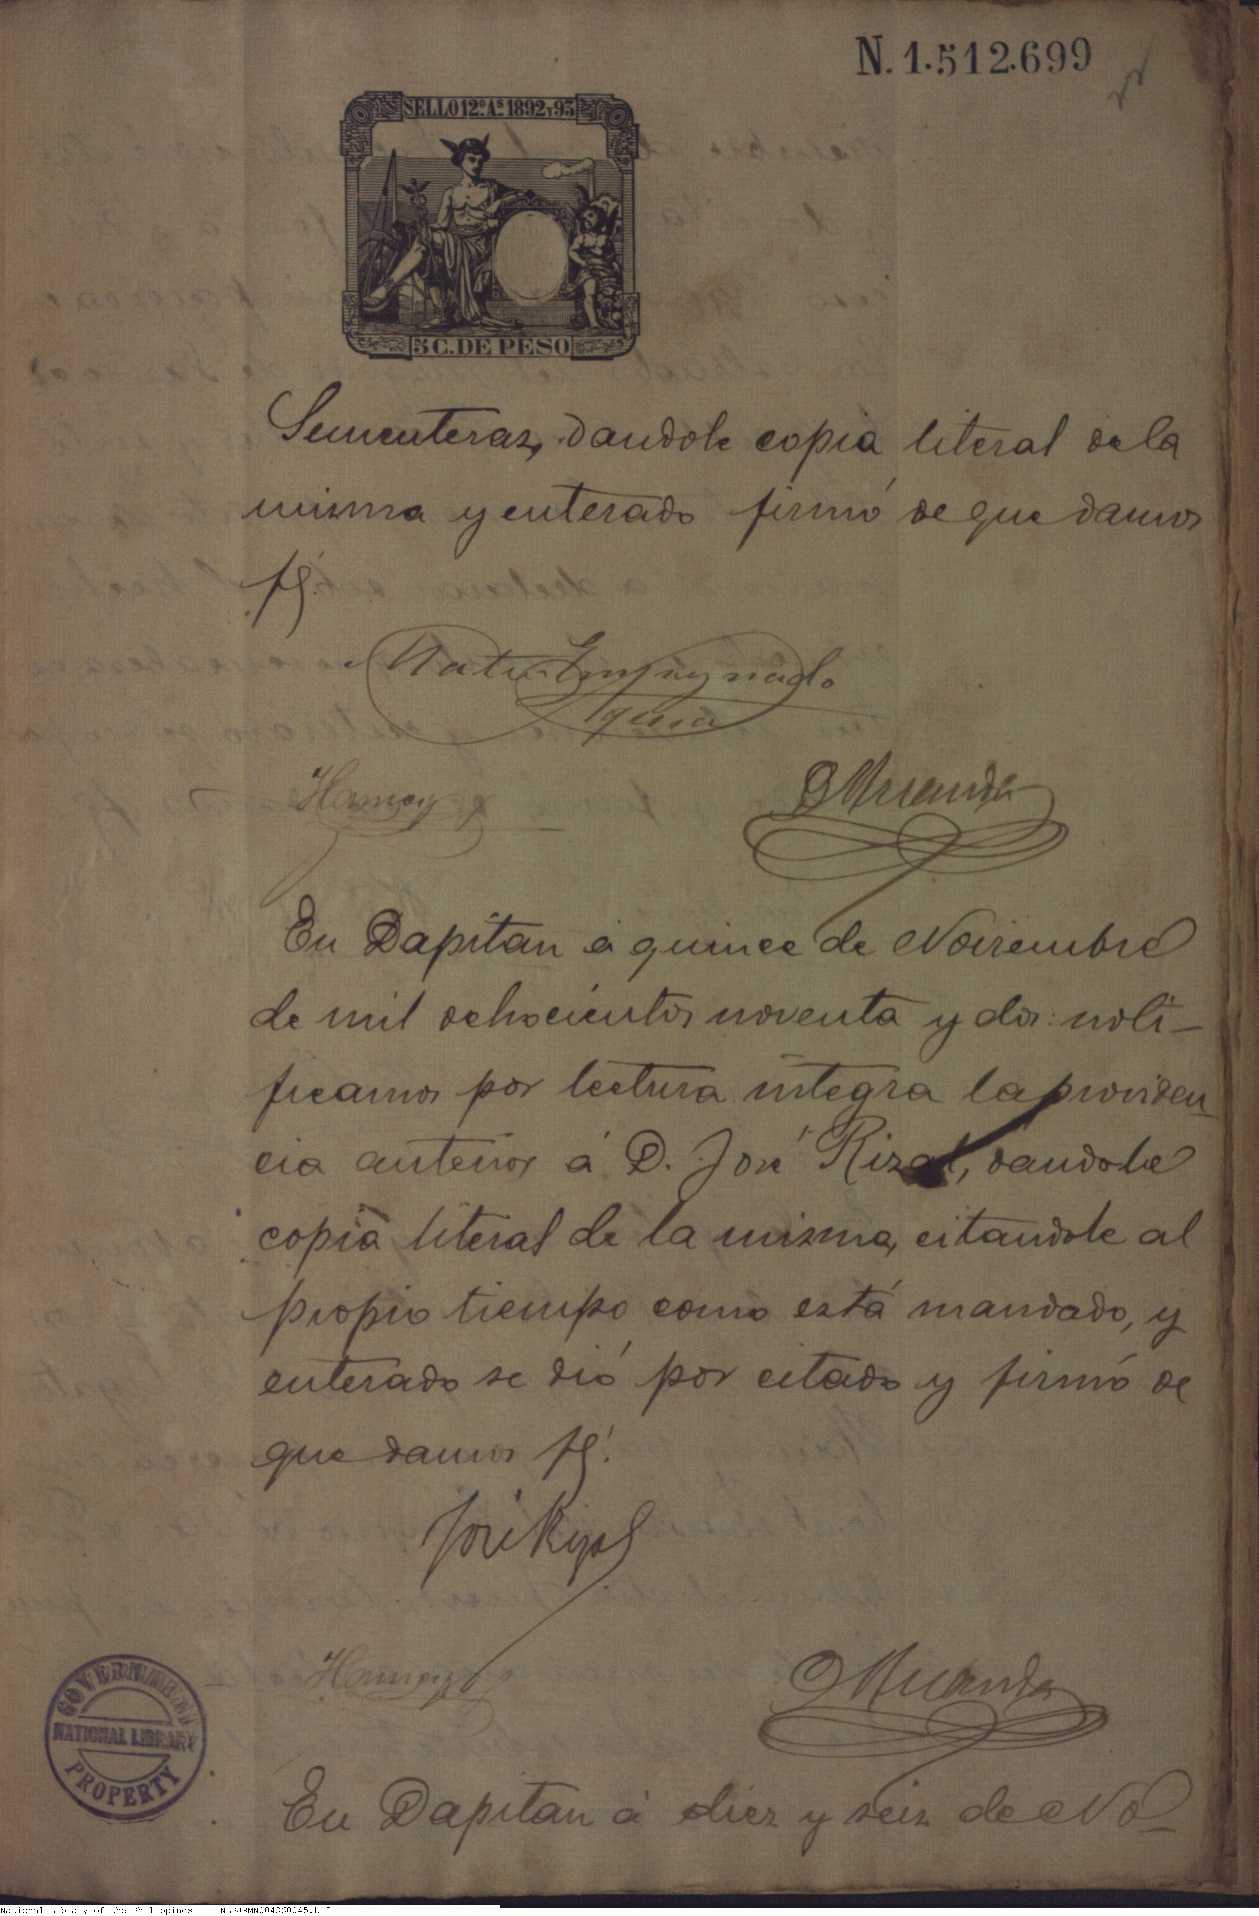 N. 1.512.699
SELLO 12º As 1892 Y 93
5 C. DE PESO
Sementeras, dandole copia literal de la
misma y enterado firmó de que damos
fé.
Empuynado
Miranda
En Dapitan á quince de Noviembre
de mil ochocientos noventa y dos: noti-
ficamos por lectura integra la providen-
cia anterior á D. José Rizal, dandole
copia literal de la misma, citandole al
propio tiempo como está mandado, y
enterado se dió por citado y firmó de
que damos fé.
José Rizal
Miranda
GOVERNMENT
NATIONAL LIBRARY
PROPERTY
En Dapitan á diez y seis de No-
National Library of the Philippines